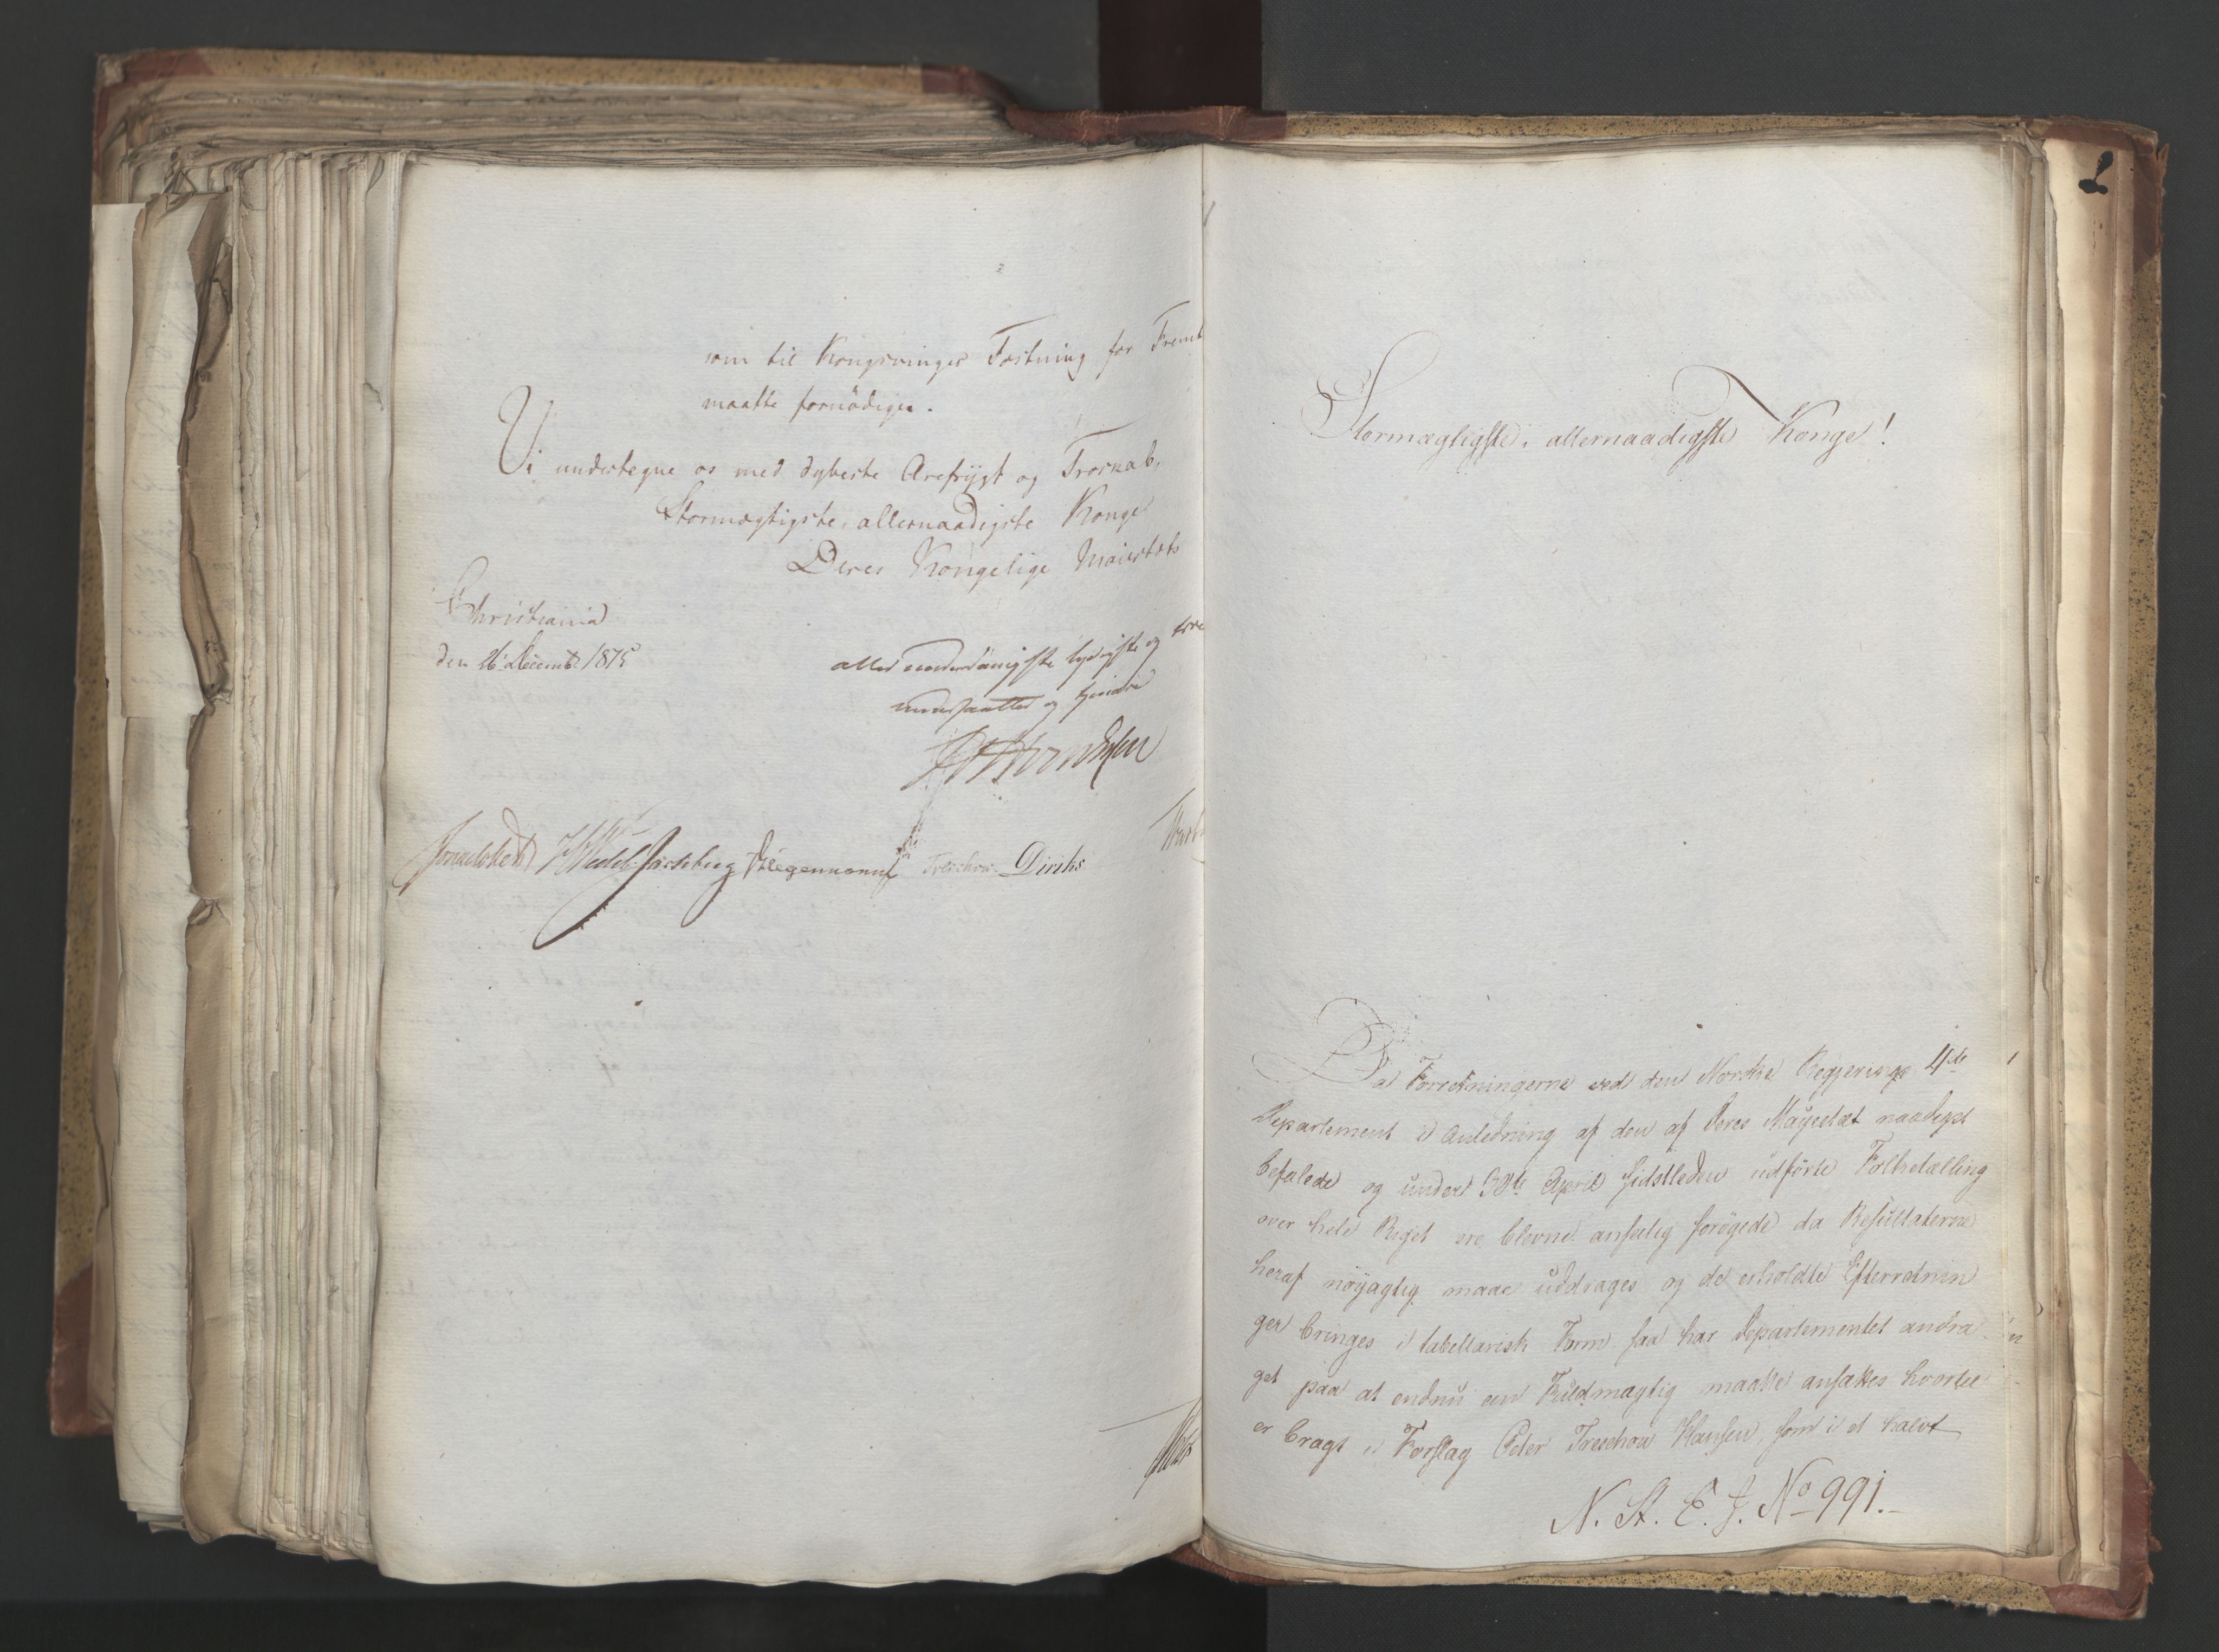 som til Kongsvinger Fæstning for Fremt
maatte fornödiges.
Vi undertegne os med dybeste Ærefrygt og Troskab,
Stormægtigste, allernaadigste Konge
Deres Kongelige Maiestæts
Christiania
den 26 Decemb. 1815
allerunderdanigste lydigste og troe
undersaatter og tjenere
Sommerhielm HWedel Jarlsberg Hegermann Treschow Diriks
Stormægtigste, allernaadigste Konge!
Da Forretningerne ved den Norske Regjerings 4de
Departement i Anledning af den af Deres Mayestæt naadigst
befalede og under 30te April sidstleden udförte Folketælling
over hele Riget ere blevne anseelig forögede da Resultaterne
heraf nöyagtig maae uddrages og de erholdte Efterretnin
ger bringes i tabellarisk Form saa har Departementet andra
get paa at endnu een Fuldmægtig maatte ansættes hvortil
er bragt i Forslag Peder Treschow Hansen, som i et halvt
N. St. E. J. No 991.